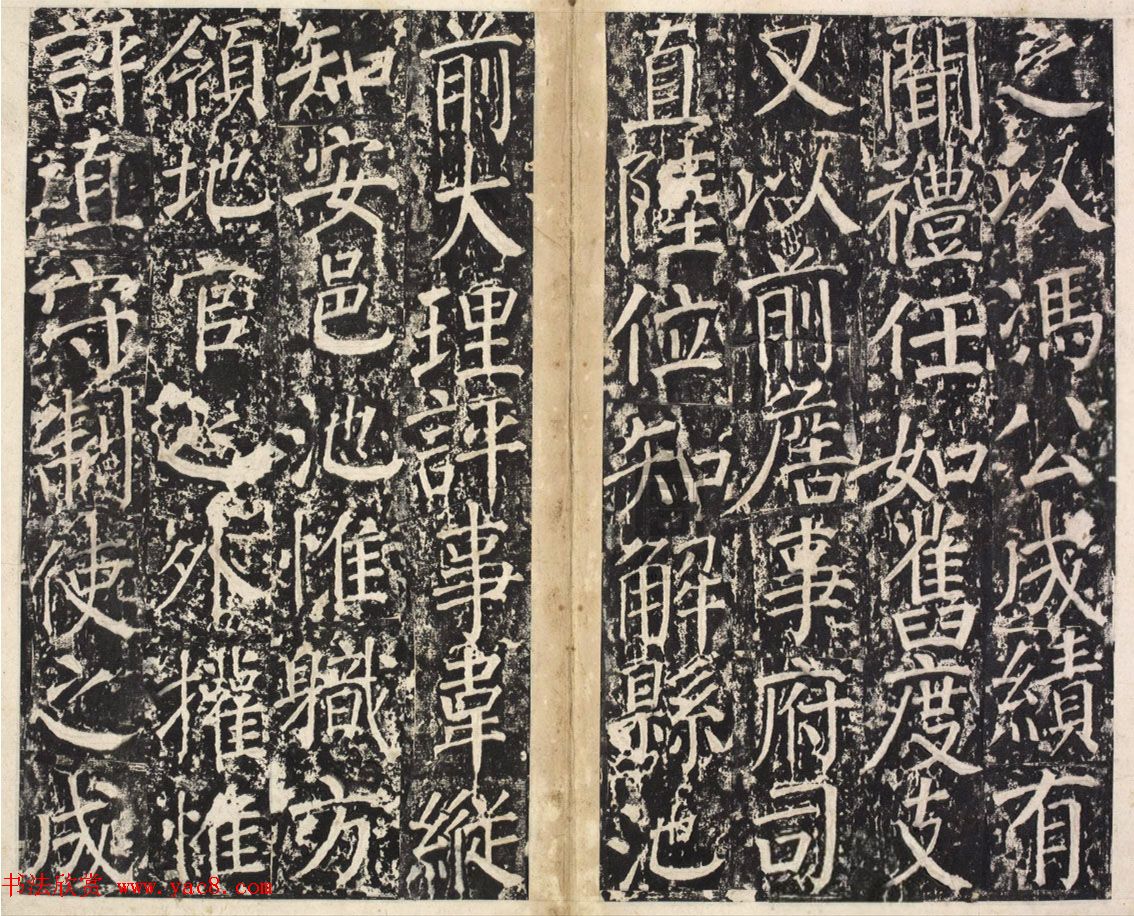 之以馮公成績有
聞禮任如舊度支
又以前詹事府司
直陸位知解縣池
前大理評事韋縱
知安邑池惟職方
領地官之外擢惟
評直守制使之成
书法欣赏 www.yac8.com